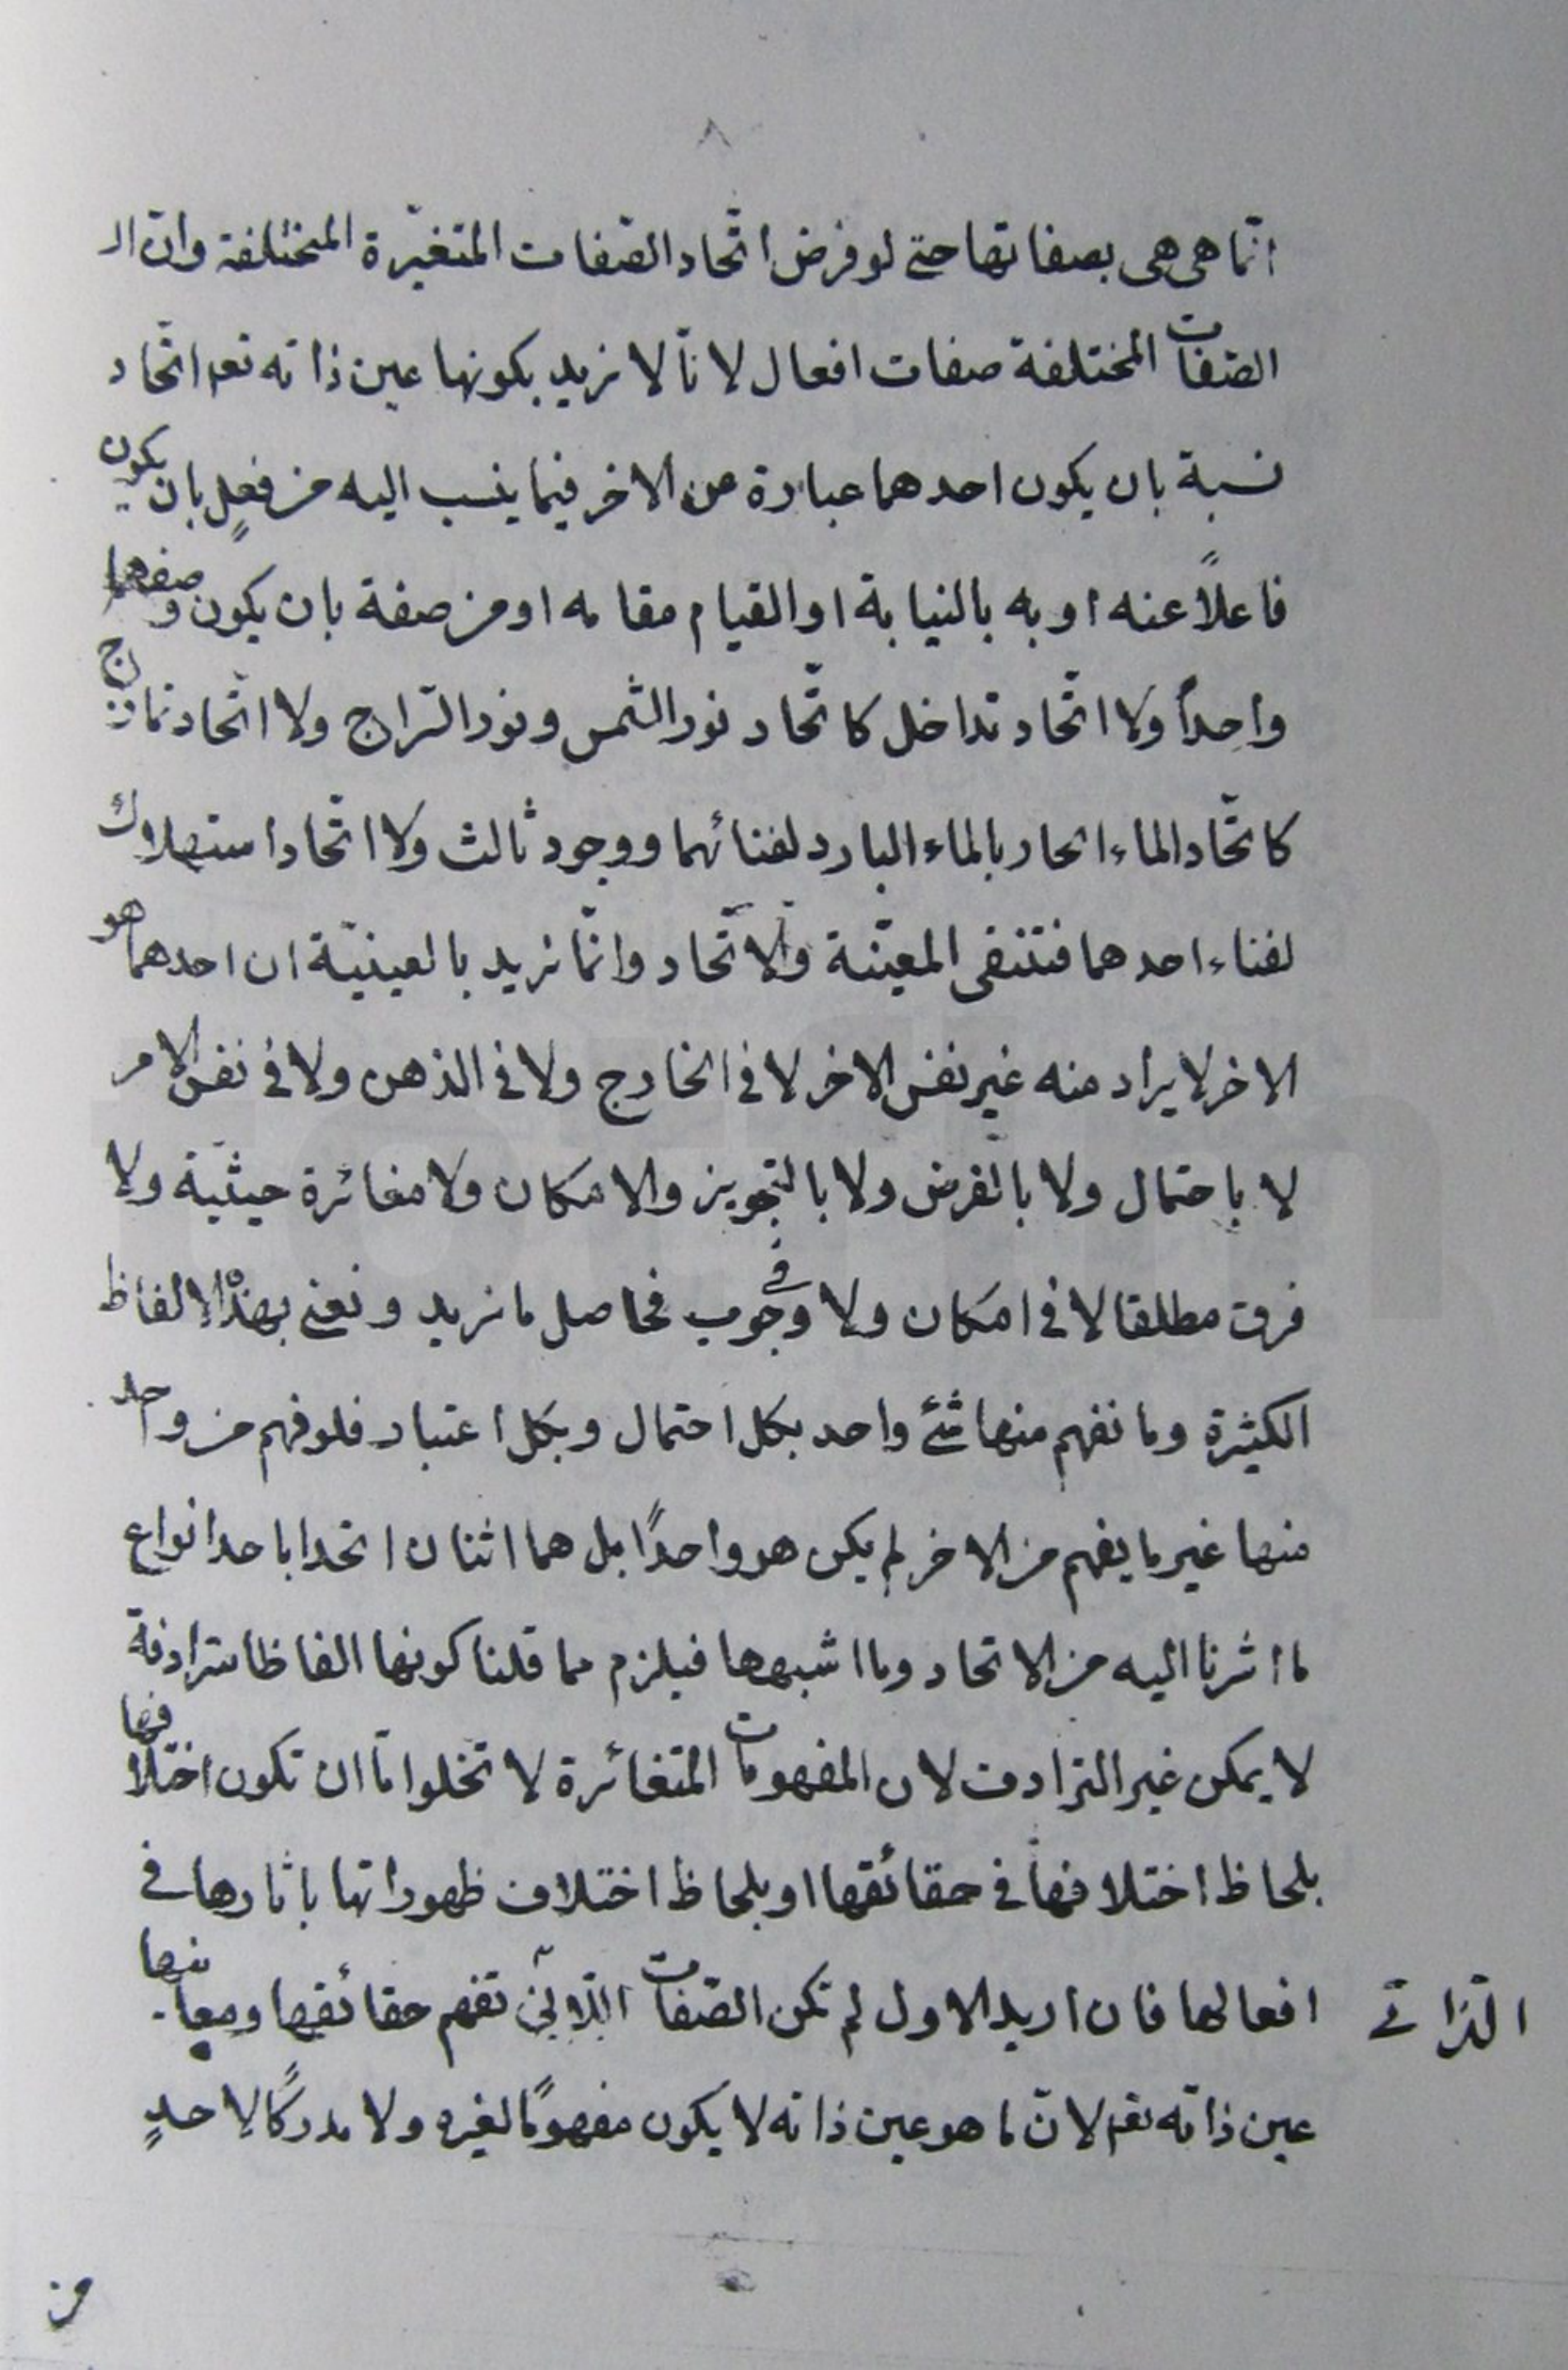 ٨
انّما هى هى بصفاتها حتى لو فرض اتّحاد الصّفات المتغيّرة المختلفة وانّ الـ
الصّفات المختلفة صفات افعال لانّا لا نريد بكونها عين ذاته تعم اتّحاد
نسبة بان يكون احدهما عبارة عن الاخر فيما ينسب اليه من فعلٍ بان يكون
فاعلاً عنه او به بالنيابة او القيام مقامه او من صفة بان يكون وصفهما
واحداً ولا اتّحاد تداخل كاتّحاد نور الشّمس ونور السّراج ولا اتّحاد تمازج
كاتّحاد الماء الحار بالماء البارد لفنائهما ووجود ثالث ولا اتّحاد استهلاك
لفناء احدهما فتنتفى المعيّنة والاتّحاد وانّما نريد بالعينيّة ان احدهما هو
الاخر لا يراد منه غير نفس الاخر لا فى الخارج ولا فى الذهن ولا فى نفس الامر
لا باحتمال ولا بالفرض ولا بالتجويز والامكان ولا مغائرة حيثيّة ولا
فرق مطلقا لا فى امكان ولا فى وجوب فحاصل ما نريد ونعنى بهذه الالفاظ
الكثيرة وما نفهم منها شئ واحد بكل احتمال وبكل اعتبار فلو فهم من واحد
منها غير ما يفهم من الاخر لم يكن هو واحداً بل هما اثنان اتحدا باحد انواع
ما اشرنا اليه من الاتحاد وما اشبهها فيلزم مما قلنا كونها الفاظا مترادفة
لا يمكن غير الترادف لان المفهومات المتغائرة لا تخلوا امّا ان تكون اختلافها
بلحاظ اختلافها فى حقائقها او بلحاظ اختلاف ظهوراتها باثارها فى
افعالها فان اريد الاول لم تكن الصّفات اللّاتى تفهم حقائقها ومعانيها
الذاتى
عين ذاته تعم لانّ ما هو عين ذاته لا يكون مفهومًا لغيره ولا مدركًا لاحدٍ